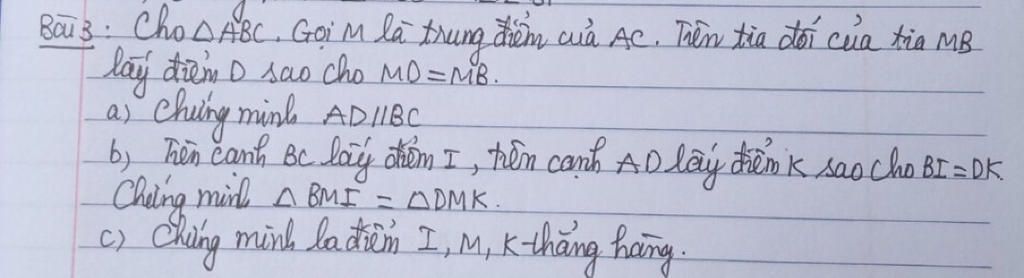 Bài 3: Cho △ABC. Gọi M là trung điểm của AC. Trên tia đối của tia MB
lấy điểm D sao cho MD=MB.
a) Chứng minh AD//BC
b) Trên cạnh BC lấy điểm I, trên cạnh AD lấy điểm K sao cho BI=DK.
Chứng minh △BMI = △DMK.
c) Chứng minh ba điểm I, M, K thẳng hàng.